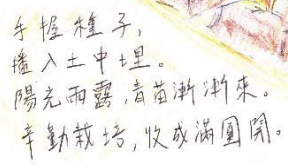 手握種子,
播入土中埋。
陽光雨露,青苗漸漸來。
辛勤栽培,收成滿園開。